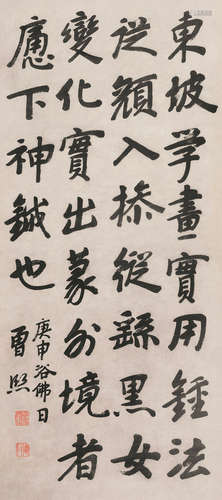 東坡学畫實用鍾法
從顏入操縱繇黑女
變化實出篆外境者
應下神鍼也
庚申浴佛日
曾熙